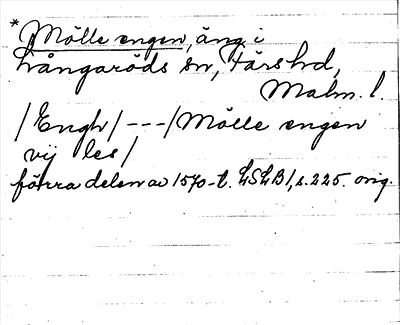 * Mölle engen, äng i
Långaröds sn, Färs hd,
Malm. l.
/Engh/ --- /Mölle engen
vij les/
förra delen av 1570-t. LSLB1, s. 225. orig.